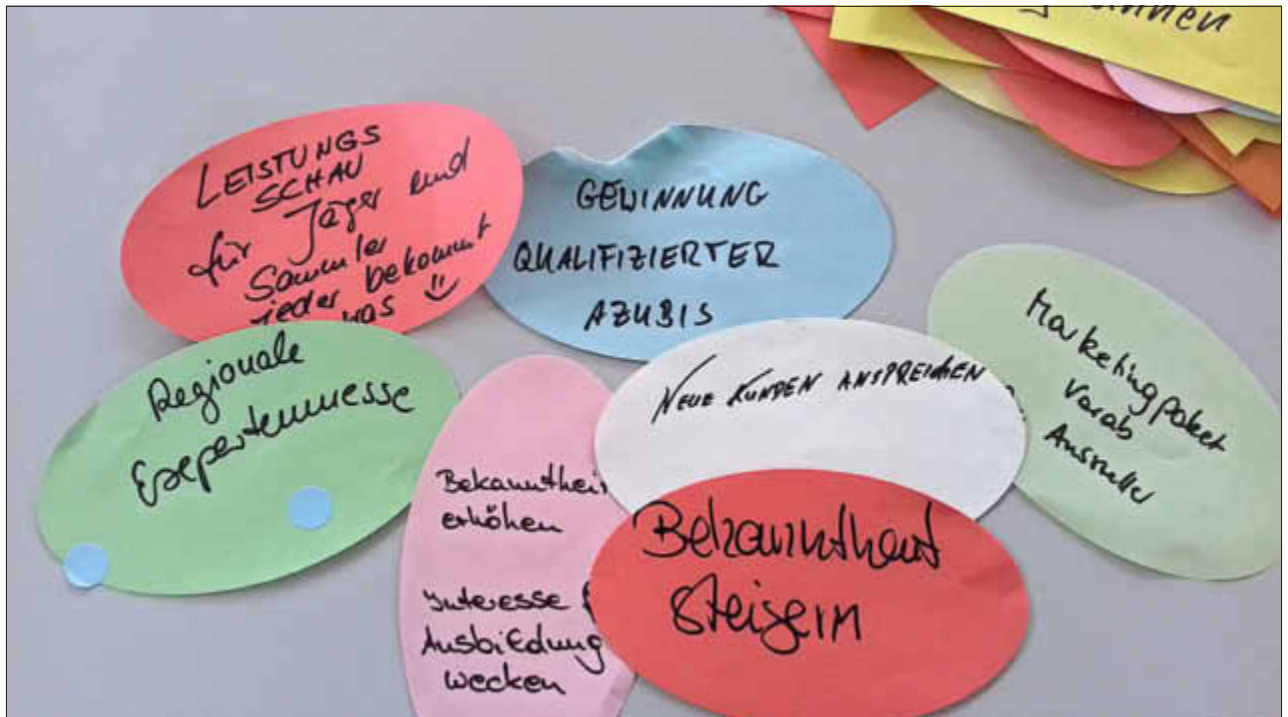 LEISTUNGS
SCHAU
für Jäger und
Sammler
jeder bekommt
was
GEWINNUNG
QUALIFIZIERTER
AZUBIS
Regionale
Expertenmesse
Bekanntheit
erhöhen
Interesse
Ausbildung
wecken
NEUE KUNDEN ANSPRECHEN
Bekanntheit
steigern
Marketingpaket
Vorab